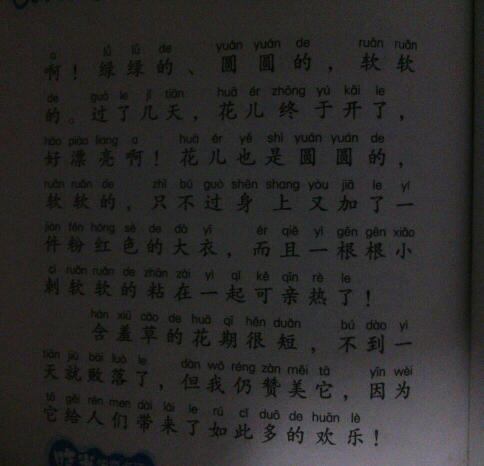 a lǜ lǜ de yuán yuán de ruǎn ruǎn
啊！绿绿的、圆圆的，软软
de guò le jǐ tiān huā ér zhōng yú kāi le
的。过了几天，花儿终于开了，
hǎo piào liang a huā ér yě shì yuán yuán de
好漂亮啊！花儿也是圆圆的，
ruǎn ruǎn de zhǐ bú guò shēn shang yòu jiā le yí
软软的，只不过身上又加了一
jiàn fěn hóng sè de dà yī ér qiě yì gēn gēn xiǎo
件粉红色的大衣，而且一根根小
cì ruǎn ruǎn de zhān zài yì qǐ kě qīn rè le
刺软软的粘在一起可亲热了！
hán xiū cǎo de huā qī hěn duǎn bú dào yì
含羞草的花期很短，不到一
tiān jiù bài luò le dàn wǒ réng zàn měi tā yīn wèi
天就败落了，但我仍赞美它，因为
tā gěi rén men dài lái le rú cǐ duō de huān lè
它给人们带来了如此多的欢乐！